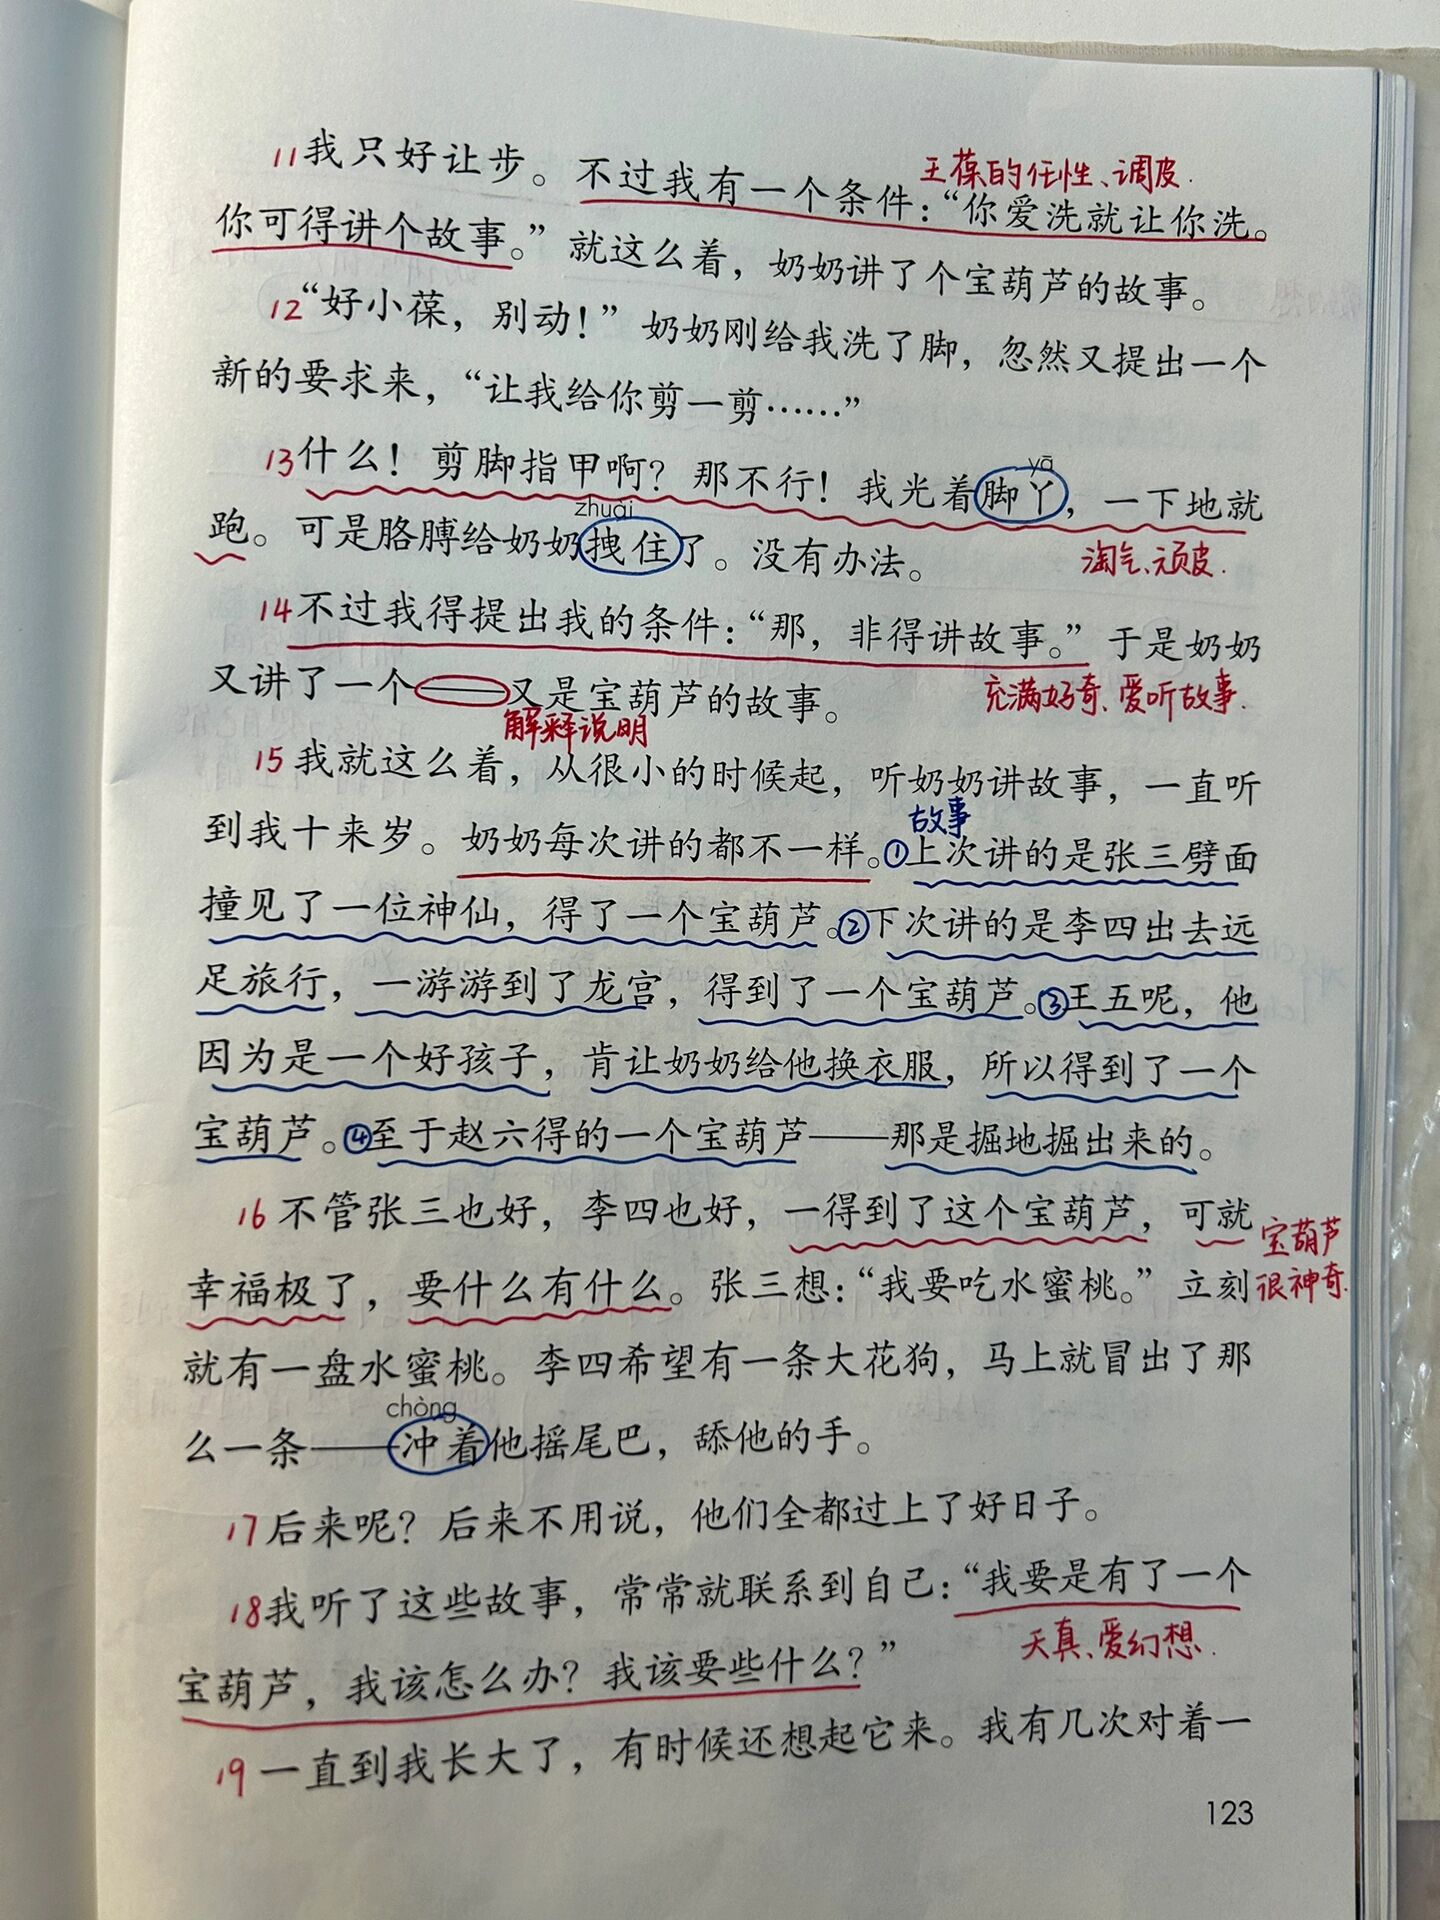 王葆的任性、调皮.
11我只好让步。不过我有一个条件：“你爱洗就让你洗。
你可得讲个故事。”就这么着，奶奶讲了个宝葫芦的故事。
12“好小葆，别动！”奶奶刚给我洗了脚，忽然又提出一个
新的要求来，“让我给你剪一剪……”
yā
13什么！剪脚指甲啊？那不行！我光着脚丫，一下地就
zhuài
跑。可是胳膊给奶奶拽住了。没有办法。
淘气、顽皮.
14不过我得提出我的条件：“那，非得讲故事。”于是奶奶
又讲了一个——又是宝葫芦的故事。
充满好奇、爱听故事.
解释说明
15我就这么着，从很小的时候起，听奶奶讲故事，一直听
故事
到我十来岁。奶奶每次讲的都不一样。①上次讲的是张三劈面
撞见了一位神仙，得了一个宝葫芦。②下次讲的是李四出去远
足旅行，一游游到了龙宫，得到了一个宝葫芦。③王五呢，他
因为是一个好孩子，肯让奶奶给他换衣服，所以得到了一个
宝葫芦。④至于赵六得的一个宝葫芦——那是掘地掘出来的。
16不管张三也好，李四也好，一得到了这个宝葫芦，可就
宝葫芦
幸福极了，要什么有什么。张三想：“我要吃水蜜桃。”立刻
很神奇.
就有一盘水蜜桃。李四希望有一条大花狗，马上就冒出了那
chòng
么一条——冲着他摇尾巴，舔他的手。
17后来呢？后来不用说，他们全都过上了好日子。
18我听了这些故事，常常就联系到自己：“我要是有了一个
天真、爱幻想.
宝葫芦，我该怎么办？我该要些什么？”
19一直到我长大了，有时候还想起它来。我有几次对着一
123